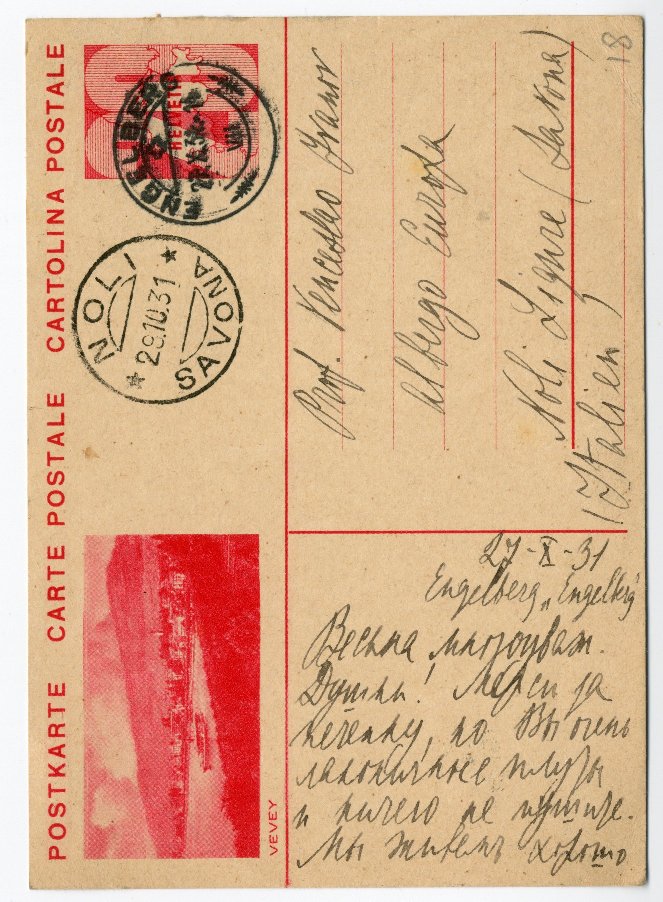 POSTKARTE CARTE POSTALE CARTOLINA POSTALE
HELVETIA
ENGELBERG
VIII
NOLI
29.10.31
SAVONA
VEVEY
18
Prof. Venceslao Ivanov
Albergo Europa
Noli Ligure (Savona)
(Italien)
27-X-31
Engelberg „Engelberg"
Весьма многоуваж.
Душки! Мерси за
но Вы очень
и ничего не пишите.
Мы живем хорошо